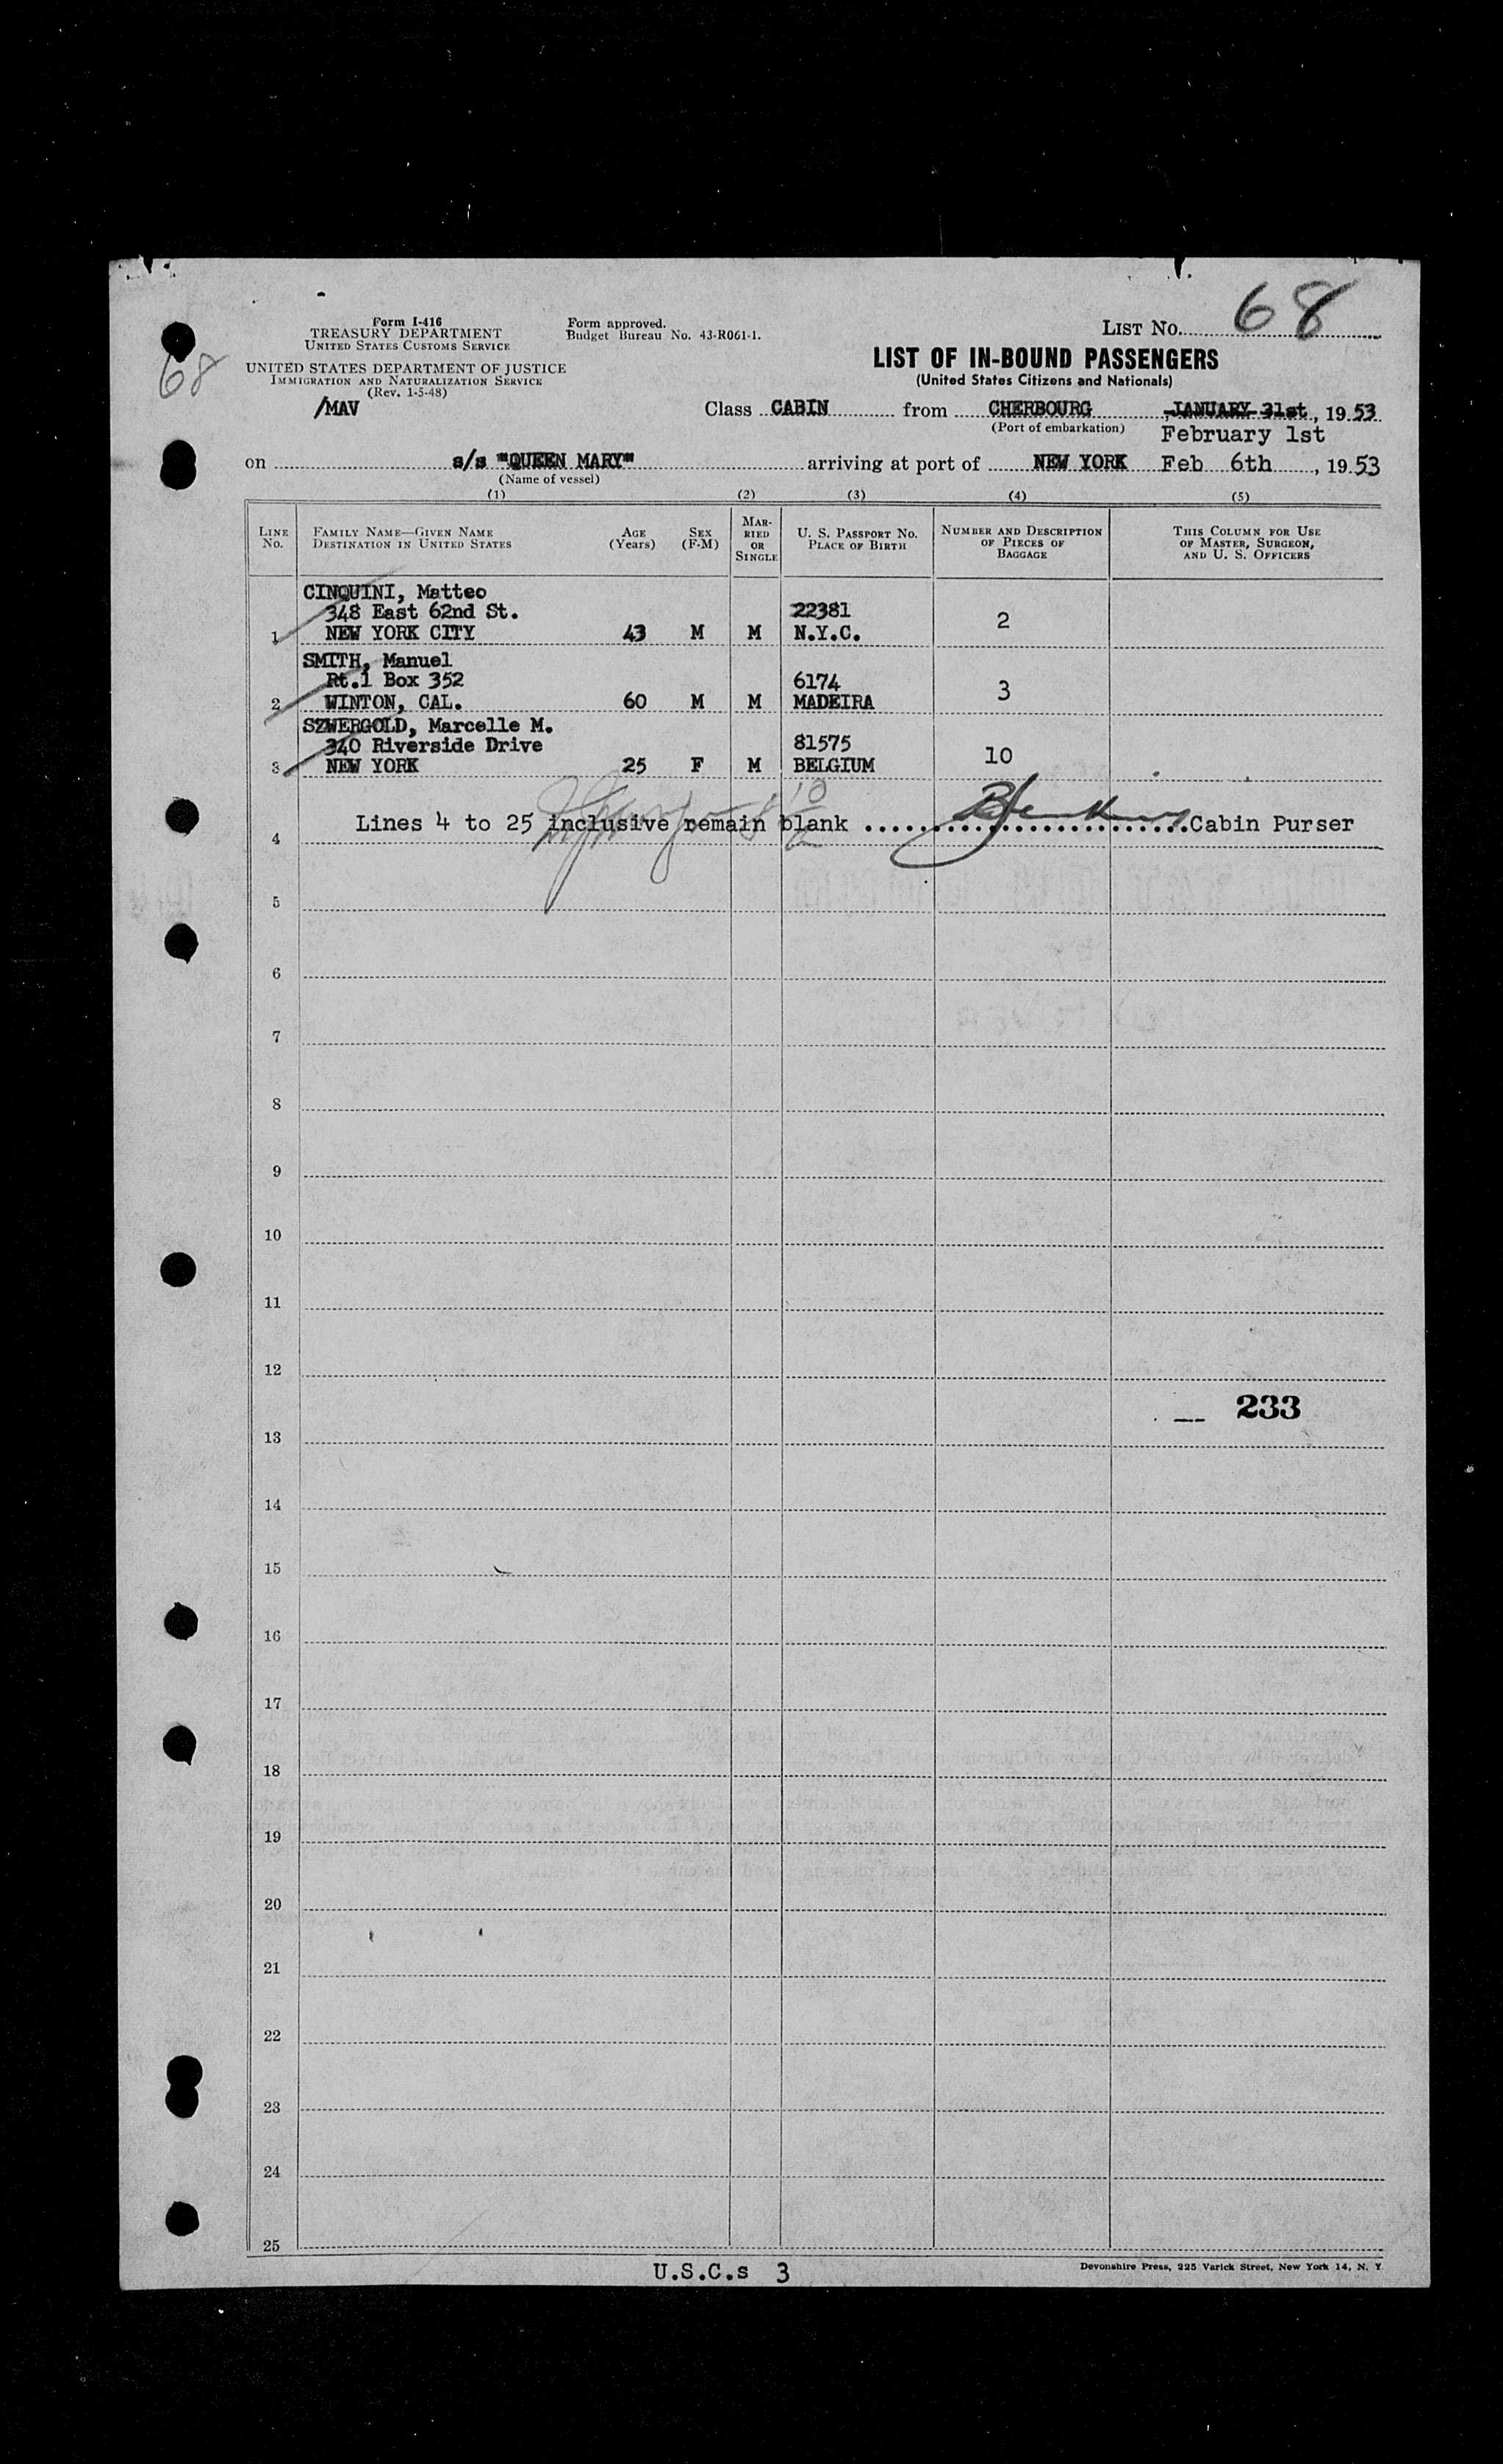 68
Form I-416
TREASURY DEPARTMENT
UNITED STATES CUSTOMS SERVICE
UNITED STATES DEPARTMENT OF JUSTICE
IMMIGRATION AND NATURALIZATION SERVICE
(Rev. 1-5-48)
/MAV
Form approved.
Budget Bureau No. 43-R061-1.
LIST NO. 68
LIST OF IN-BOUND PASSENGERS
(United States Citizens and Nationals)
Class CABIN from CHERBOURG, JANUARY 31st, 1953
(Port of embarkation) February 1st
on s/s "QUEEN MARY" arriving at port of NEW YORK Feb 6th, 1953
(Name of vessel)
(1) (2) (3) (4) (5)
LINE No. FAMILY NAME—GIVEN NAME DESTINATION IN UNITED STATES AGE (Years) SEX (F-M) MARRIED OR SINGLE U. S. PASSPORT NO. PLACE OF BIRTH NUMBER AND DESCRIPTION OF PIECES OF BAGGAGE THIS COLUMN FOR USE OF MASTER, SURGEON, AND U. S. OFFICERS
CINQUINI, Matteo
348 East 62nd St. 22381
1 NEW YORK CITY 43 M M N.Y.C. 2
SMITH, Manuel
Rt.1 Box 352 6174
2 WINTON, CAL. 60 M M MADEIRA 3
SZWERGOLD, Marcelle M.
340 Riverside Drive 81575
3 NEW YORK 25 F M BELGIUM 10
4 Lines 4 to 25 inclusive remain blank ........................Cabin Purser
5
6
7
8
9
10
11
12
233
13
14
15
16
17
18
19
20
21
22
23
24
25
U.S.C.s 3
Devonshire Press, 225 Varick Street, New York 14, N. Y.